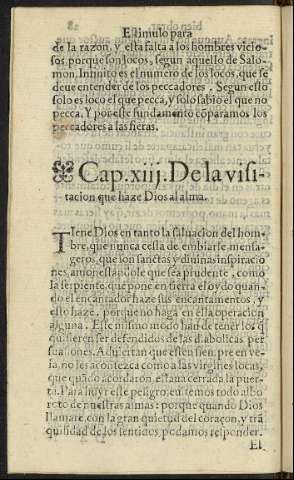 Estimulo para
de la razon, y esta falta a los hombres vicio-
sos porque son locos, segun aquello de Salo-
mon. Infinito es el numero de los locos, que se
deue entender de los peccadores. Segun esto
solo es loco el que pecca, y solo sabio el que no
pecca. Y por este fundamento cōparamos los
peccadores a las fieras.
Cap. xiij. De la visi-
tacion que haze Dios al alma.
TIene Dios en tanto la saluacion del hom-
bre, que nunca cessa de embiarle mensa-
geros, que son sanctas y diuinas inspiracio
nes, amonestandole que sea prudente, como
la serpiente, que pone en tierra el oydo quan-
do el encantador haze sus encantamentos, y
esto haze, porque no haga en esta operacion
alguna. Este mismo modo han de tener los q̄
quisieren ser defendidos de las diabolicas per
suasiones. Aduiertan que esten bien pre en ve-
la, no les acontezca como a las virgines locas,
que quādo acordaron, estaua cerrada la puer-
ta. Para huyr este peligro, euitemos todo albo
roto de nuestras almas: porque quando Dios
llamare, con la gran quietud del coraçon, y trā
quilidad de los sentidos, podamos responder.
El